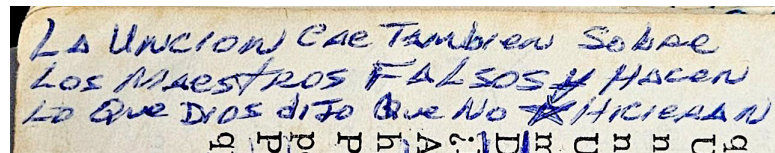 LA UNCION CAE TAMBIEN SOBRE
LOS MAESTROS FALSOS Y HACEN
LO QUE DIOS DIJO QUE NO HICIERAN